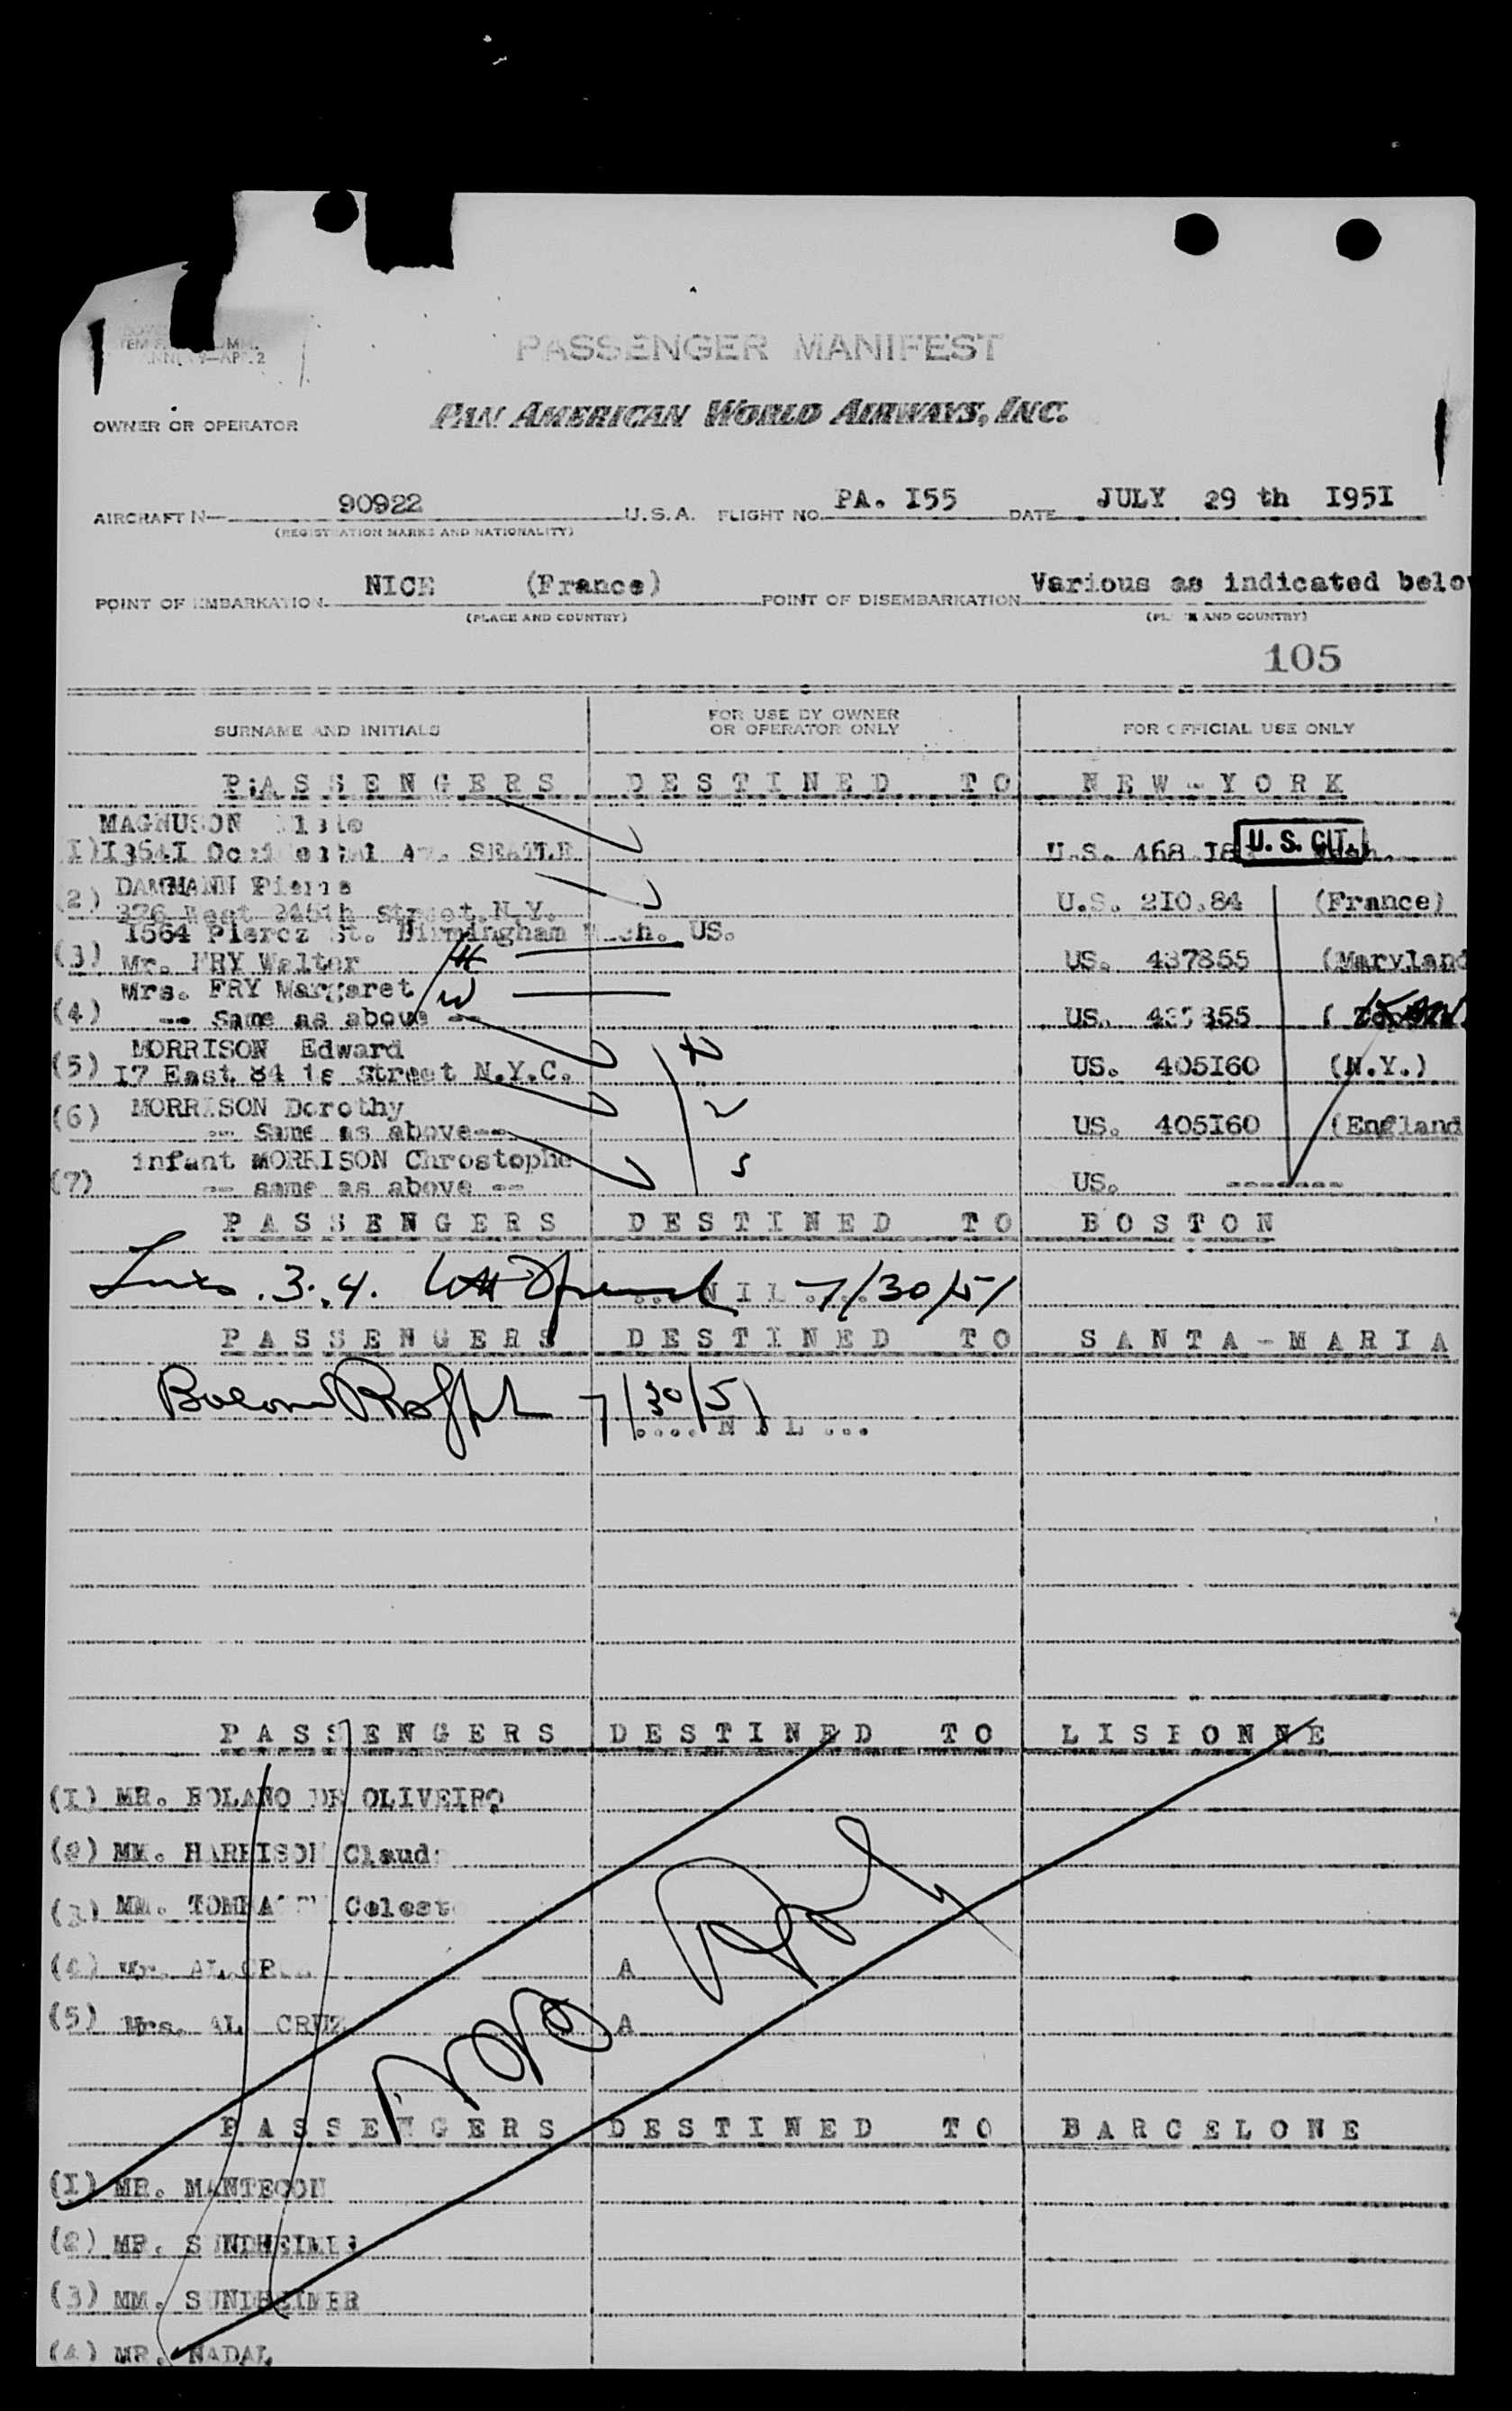 PASSENGER MANIFEST
OWNER OR OPERATOR PAN AMERICAN WORLD AIRWAYS, INC.
AIRCRAFT N— 90922 U.S.A. FLIGHT NO. PA. I55 DATE JULY 29 th I95I
(REGISTRATION MARKS AND NATIONALITY)
POINT OF EMBARKATION NICE (France) POINT OF DISEMBARKATION Various as indicated belo
(PLACE AND COUNTRY) (PLACE AND COUNTRY)
105
SURNAME AND INITIALS FOR USE BY OWNER OR OPERATOR ONLY FOR OFFICIAL USE ONLY
PASSENGERS DESTINED TO NEW-YORK
MAGNUSON
I) I354I Av. SEATLE U.S. 468 U.S. CIT.
(2) DAMMANN Pierre U.S. 2I0.84 (France)
West Street. N.Y.
I564 Piercz St. Birmingham US.
(3) Mr. FRY Walter H US. 437855 (Maryland
Mrs. FRY Margaret W
(4) -- Same as above -- US.
MORRISON Edward
(5) I7 East 84 Street N.Y.C. US. 405I60 (N.Y.)
(6) MORRISON Dorothy
-- Same as above-- US. 405I60 (England
infant MORRISON Chrostophe
(7) -- same as above -- US. -------
PASSENGERS DESTINED TO BOSTON
.3.,4. NIL 7/30/51
PASSENGERS DESTINED TO SANTA-MARIA
7/30/51
.... NIL ...
PASSENGERS DESTINED TO LISBONNE
(I) MR. BOLANO DE OLIVEIRO
(2) MM. HARRISON Claud
(3) MM. Celest
(4) A
(5) Mrs. AL CRUZ A
PASSENGERS DESTINED TO BARCELONE
(I) MR. MANTECON
(2) MR.
(3) MM. SUNDHEIMER
(4) MR. NADAL